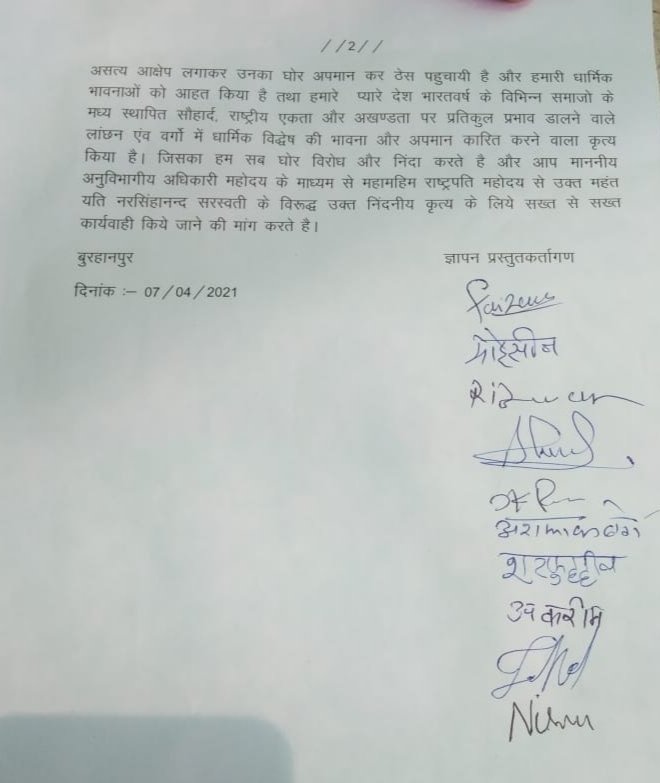 //2//
असत्य आक्षेप लगाकर उनका घोर अपमान कर ठेस पहुचायी है और हमारी धार्मिक
भावनाओं को आहत किया है तथा हमारे प्यारे देश भारतवर्ष के विभिन्न समाजो के
मध्य स्थापित सौहार्द, राष्ट्रीय एकता और अखण्डता पर प्रतिकुल प्रभाव डालने वाले
लांछन एंव वर्गो में धार्मिक विद्धेष की भावना और अपमान कारित करने वाला कृत्य
किया है। जिसका हम सब घोर विरोध और निंदा करते है और आप माननीय
अनुविभागीय अधिकारी महोदय के माध्यम से महामहिम राष्ट्रपति महोदय से उक्त महंत
यति नरसिंहानन्द सरस्वती के विरूद्ध उक्त निंदनीय कृत्य के लिये सख्त से सख्त
कार्यवाही किये जाने की मांग करते है।
बुरहानपुर
ज्ञापन प्रस्तुतकर्तागण
दिनांक :– 07/04/2021
मोईसीन
शरफुद्दीन